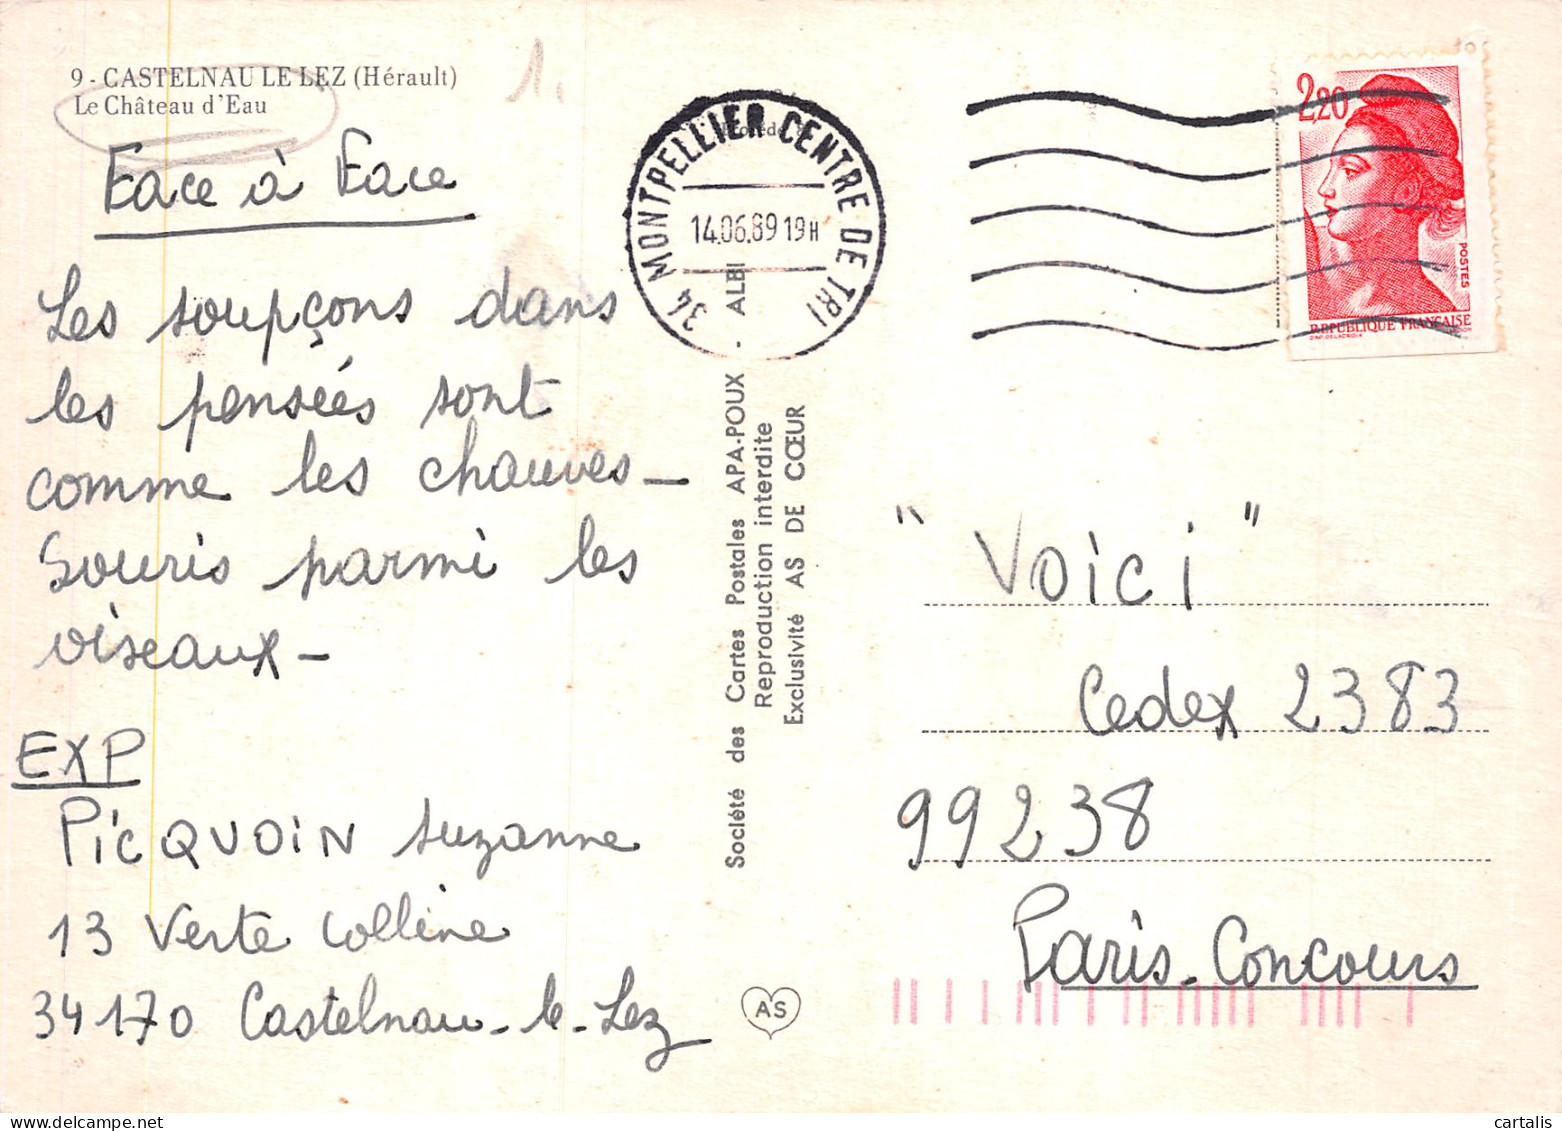 9 - CASTELNAU LE LEZ (Hérault)
Le Château d'Eau
1.
Face à Face
Les soupçons dans
les pensées sont
comme les chauves-
Souris parmi les
oiseaux -
EXP
PiCQUOIN Suzanne
13 Verte Colline
34170 Castelnau-le-Lez
Société des Cartes Postales APA-POUX - ALBI
Reproduction interdite
Exclusivité AS DE CŒUR
AS
34 MONTPELLIER CENTRE DE TRI
14.06.89 19H
2,20
POSTES
REPUBLIQUE FRANÇAISE
D'AP. DELACROIX
"Voici"
Cedex 2383
99238
Paris-Concours
cartalis